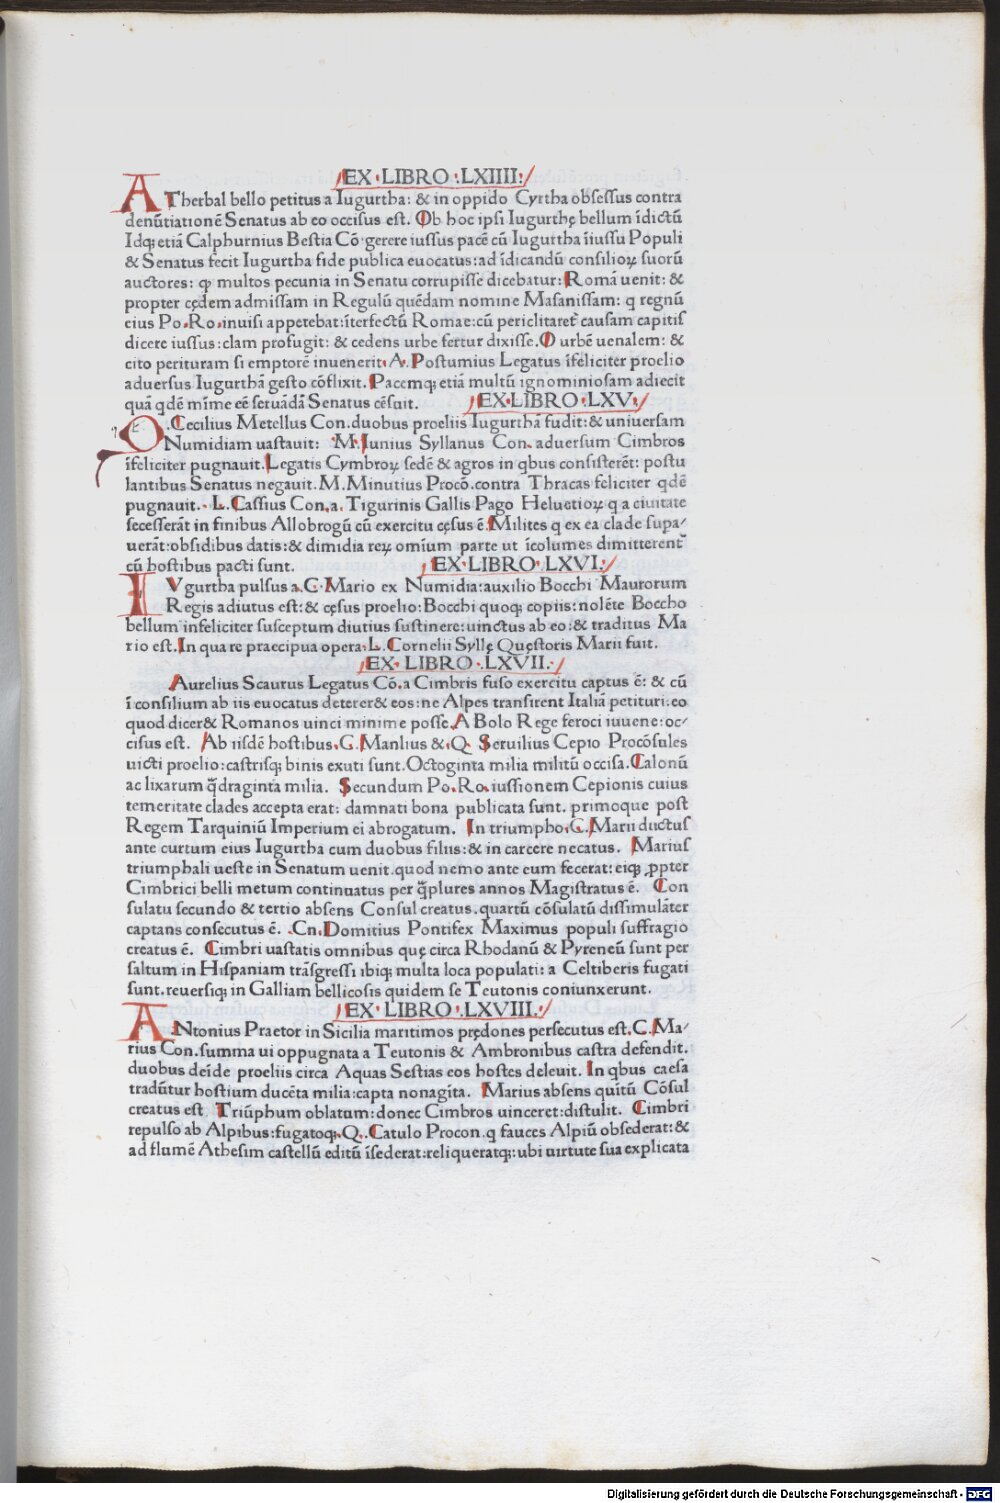 EX·LIBRO·LXIIII:
ATherbal bello petitus a Iugurtha: & in oppido Cyrtha obſeſſus contra
denūtiationē Senatus ab eo occiſus eſt. Ob hoc ipſi Iugurthę bellum īdictū
Idq; etiā Calphurnius Beſtia Cō·gerere iuſſus pacē cū Iugurtha īiuſſu Populi
& Senatus fecit Iugurtha fide publica euocatus:ad īdicandū conſilioꝝ ſuorū
auctores: ꝙ multos pecunia in Senatu corrupiſſe dicebatur: Romā uenit: &
propter cędem admiſſam in Regulū quēdam nomine Maſaniſſam: q regnū
eius Po.Ro.inuiſi appetebat:īterfectū Romae:cū periclitaret᷑ cauſam capitiſ
dicere iuſſus:clam profugit: & cedens urbe fertur dixiſſe.O urbē uenalem: &
cito perituram ſi emptorē inuenerit.A. Poſtumius Legatus īfeliciter proelio
aduerſus Iugurthā geſto cōflixit. Pacemq; etiā multū ignominioſam adiecit
quā qdē mīme eē ſeruādā Senatus cēſuit.
EX·LIBRO·LXV·
Q.Cecilius Metellus Con.duobus proeliis Iugurthā fudit:& uniuerſam
Numidiam uaſtauit: M.Iunius Syllanus Con. aduerſum Cimbros
īfeliciter pugnauit.Legatis Cymbroꝝ ſedē & agros in qbus conſiſterēt: poſtu
lantibus Senatus negauit. M. Minutius Procō.contra Thracas feliciter qdē
pugnauit. L. Caſſius Con.a. Tigurinis Gallis Pago Heluetioꝝ q a ciuitate
ſeceſſerāt in finibus Allobrogū cū exercitu cęſus ē.Milites q ex ea clade ſupa⸗
uerāt:obſidibus datis:& dimidia reꝝ omīum parte ut īcolumes dimitterent᷑
cū hoſtibus pacti ſunt.
EX·LIBRO·LXVI:
IVgurtha pulſus a.C.Mario ex Numidia:auxilio Bocchi Maurorum
Regis adiutus eſt:& cęſus proelio: Bocchi quoq; copiis: nolēte Boccho
bellum infeliciter ſuſceptum diutius ſuſtinere: uinctus ab eo:& traditus Ma
rio eſt.In qua re praecipua opera.L.Cornelii Syllę Quęſtoris Marii fuit.
EX·LIBRO·LXVII.
Aurelius Scaurus Legatus Cō.a Cimbris fuſo exercitu captus ē: & cū
ī conſilium ab iis euocatus deterer& eos:ne Alpes tranſirent Italiā petituri:eo
quod dicer& Romanos uinci minime poſſe.A Bolo Rege feroci iuuene:oc⸗
ciſus eſt. Ab iiſdē hoſtibus.C.Manlius &.Q. Seruilius Cepio Procōſules
uicti proelio:caſtriſq; binis exuti ſunt.Octoginta milia militū occiſa.Calonū
ac lixarum q̄draginta milia. Secundum Po.Ro.iuſſionem Cepionis cuius
temeritate clades accepta erat: damnati bona publicata ſunt. primoque poſt
Regem Tarquiniū Imperium ei abrogatum. In triumpho.C.Marii ductuſ
ante currum eius Iugurtha cum duobus filiis:& in carcere necatus. Mariuſ
triumphali ueſte in Senatum uenit.quod nemo ante eum fecerat: eiq; ꝓpter
Cimbrici belli metum continuatus per q̄plures annos Magiſtratus ē. Con
ſulatu ſecundo & tertio abſens Conſul creatus.quartū cōſulatū diſſimulāter
captans conſecutus ē. Cn.Domitius Pontifex Maximus populi ſuffragio
creatus ē. Cimbri uaſtatis omnibus quę circa Rhodanū & Pyreneū ſunt per
ſaltum in Hiſpaniam trāſgreſſi ibiq; multa loca populati: a Celtiberis fugati
ſunt.reuerſiq; in Galliam bellicoſis quidem ſe Teutonis coniunxerunt.
EX·LIBRO·LXVIII.
ANtonius Praetor in Sicilia maritimos prędones perſecutus eſt.C.Ma⸗
rius Con.ſumma ui oppugnata a Teutonis & Ambronibus caſtra defendit.
duobus deīde proeliis circa Aquas Seſtias eos hoſtes deleuit. In qbus caeſa
tradūtur hoſtium ducēta milia:capta nonagīta. Marius abſens quītū Cōſul
creatus eſt Triūphum oblatum:donec Cimbros uinceret:diſtulit. Cimbri
repulſo ab Alpibus:fugatoq;.Q.Catulo Procon.q fauces Alpiū obſederat:&
ad flumē Atheſim caſtellū editū īſederat:reliqueratq;:ubi uirtute ſua explicata
Digitalisierung gefördert durch die Deutsche Forschungsgemeinschaft - DFG